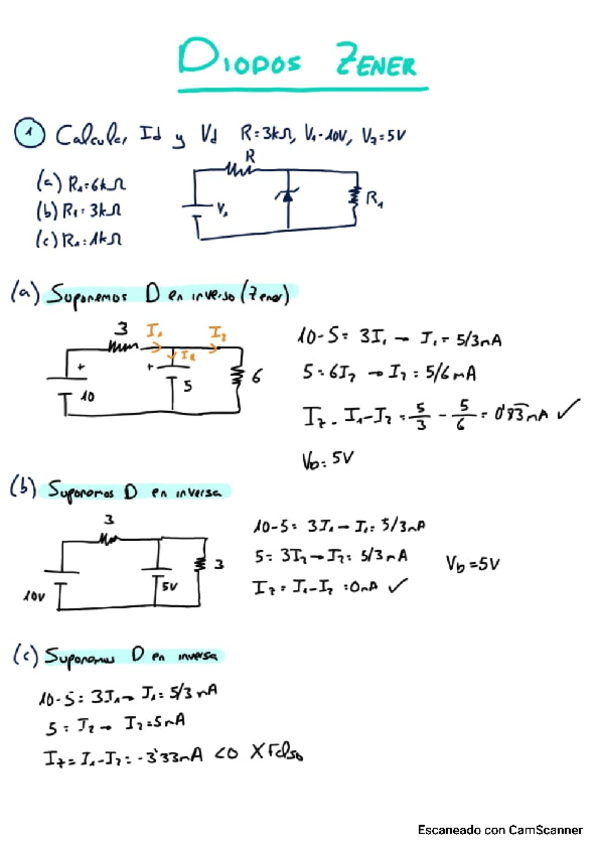 DIODOS ZENER
1 Calcular Id y Vd R=3kΩ, V1=10V, Vz=5V
R
(a) R1=6kΩ
(b) R1=3kΩ
(c) R1=1kΩ
V1
R1
(a) Suponemos D en inverso (Zener)
3 I1 I2
Iz
+ +
10 5 6
10-5=3I1 → I1=5/3mA
5=6I2 → I2=5/6mA
Iz=I1-I2=5/3-5/6=0'83mA ✓
VD=5V
(b) Suponemos D en inversa
3
10V 5V 3
10-5=3I1→I1=5/3mA
5=3I2→I2=5/3mA
Iz=I1-I2=0mA ✓
VD=5V
(c) Suponemos D en inversa
10-5=3I1→I1=5/3mA
5=I2→I2=5mA
Iz=I1-I2=-3'33mA <0 X Falso
Escaneado con CamScanner